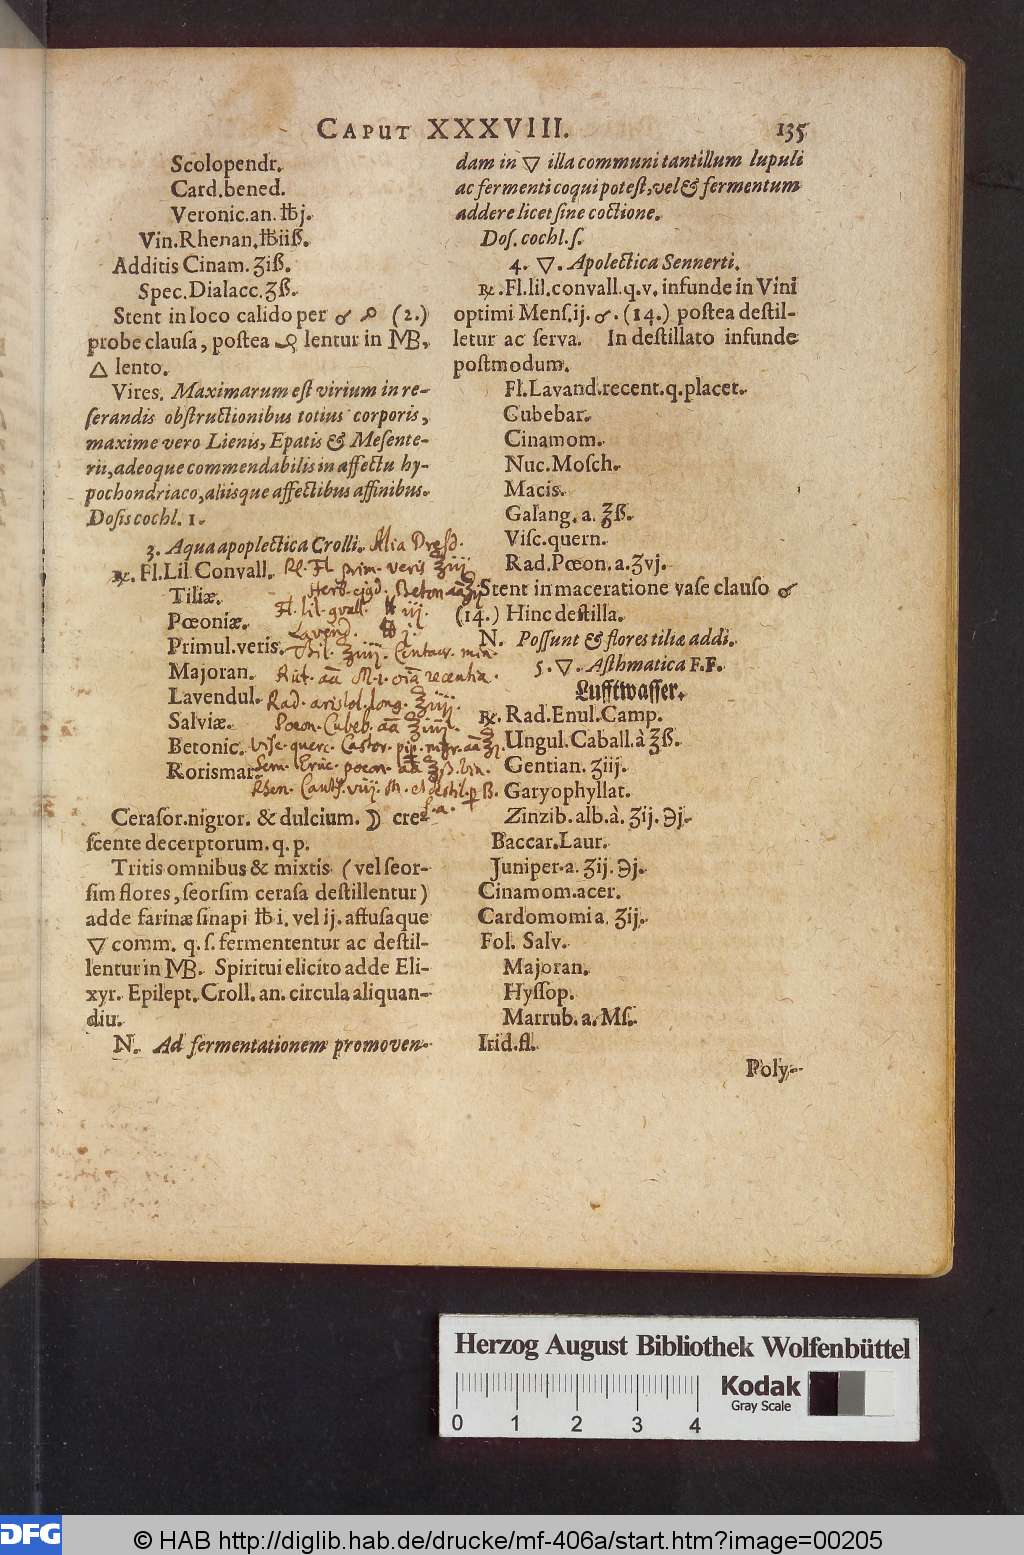 CAPUT XXXVIII. 135
Scolopendr.
Card. bened.
Veronic. an. ℔j.
Vin. Rhenan. ℔iiß.
Additis Cinam. ʒiß.
Spec. Dialacc. ʒß.
Stent in loco calido per ☌ (2.)
probe clausa, postea lentur in MB.
🜂 lento.
Vires. Maximarum est virium in re-
serandis obstructionibus totius corporis,
maxime vero Lienis, Epatis & Mesente-
rii, adeoque commendabilis in affectu hy-
pochondriaco, aliisque affectibus affinibus.
Dosis cochl. 1.
3. Aqua apoplectica Crolli. Alia Dresd.
℞. Fl. Lil. Convall.
Tiliæ.
Pœoniæ.
Primul. veris.
Majoran.
Lavendul.
Salviæ.
Betonic.
Rorismar.
℞. Fl. prim. veris
Herb. ejusd. Beton. aā
Fl. lil. iij.
Lavend. j.
Centaur. min.
Rut. aā M. j. recentia.
Rad. aristol. long.
Pœon. Cubeb. aā
Visc. querc. Castor. pip. nigr. aā
Sem. Eruc. pœon. aā ʒß. Vin.
Rhen. M. et destil. p B.
Cerasor. nigror. & dulcium. ☽ cre-
scente decerptorum. q. p.
Tritis omnibus & mixtis (vel seor-
sim flores, seorsim cerasa destillentur)
adde farinæ sinapi ℔ i. vel ij. affusaque
🜄 comm. q. s. fermententur ac destil-
lentur in MB. Spiritui elicito adde Eli-
xyr. Epilept. Croll. an. circula aliquan-
diu.
N. Ad fermentationem promoven-
dam in 🜄 illa communi tantillum lupuli
ac fermenti coqui potest, vel & fermentum
addere licet sine coctione.
Dos. cochl. s.
4. 🜄. Apolectica Sennerti.
℞. Fl. lil. convall. q. v. infunde in Vini
optimi Mens. ij. ☌. (14.) postea destil-
letur ac serva. In destillato infunde
postmodum.
Fl. Lavand. recent. q. placet.
Cubebar.
Cinamom.
Nuc. Mosch.
Macis.
Galang. a. ʒß.
Visc. quern.
Rad. Pœon. a. ʒvj.
Stent in maceratione vase clauso ☌
(14.) Hinc destilla.
N. Possunt & flores tiliæ addi.
5. 🜄. Asthmatica F. F.
Lufftwasser.
℞. Rad. Enul. Camp.
Ungul. Caball. à ʒß.
Gentian. ʒiij.
Garyophyllat.
Zinzib. alb. à. ʒij. ℈j.
Baccar. Laur.
Juniper. a. ʒij. ℈j.
Cinamom. acer.
Cardomomi a. ʒij.
Fol. Salv.
Majoran.
Hyssop.
Marrub. a. Ms.
Irid. fl.
Poly-
Herzog August Bibliothek Wolfenbüttel
0 1 2 3 4
Kodak
Gray Scale
DFG
© HAB http://diglib.hab.de/drucke/mf-406a/start.htm?image=00205